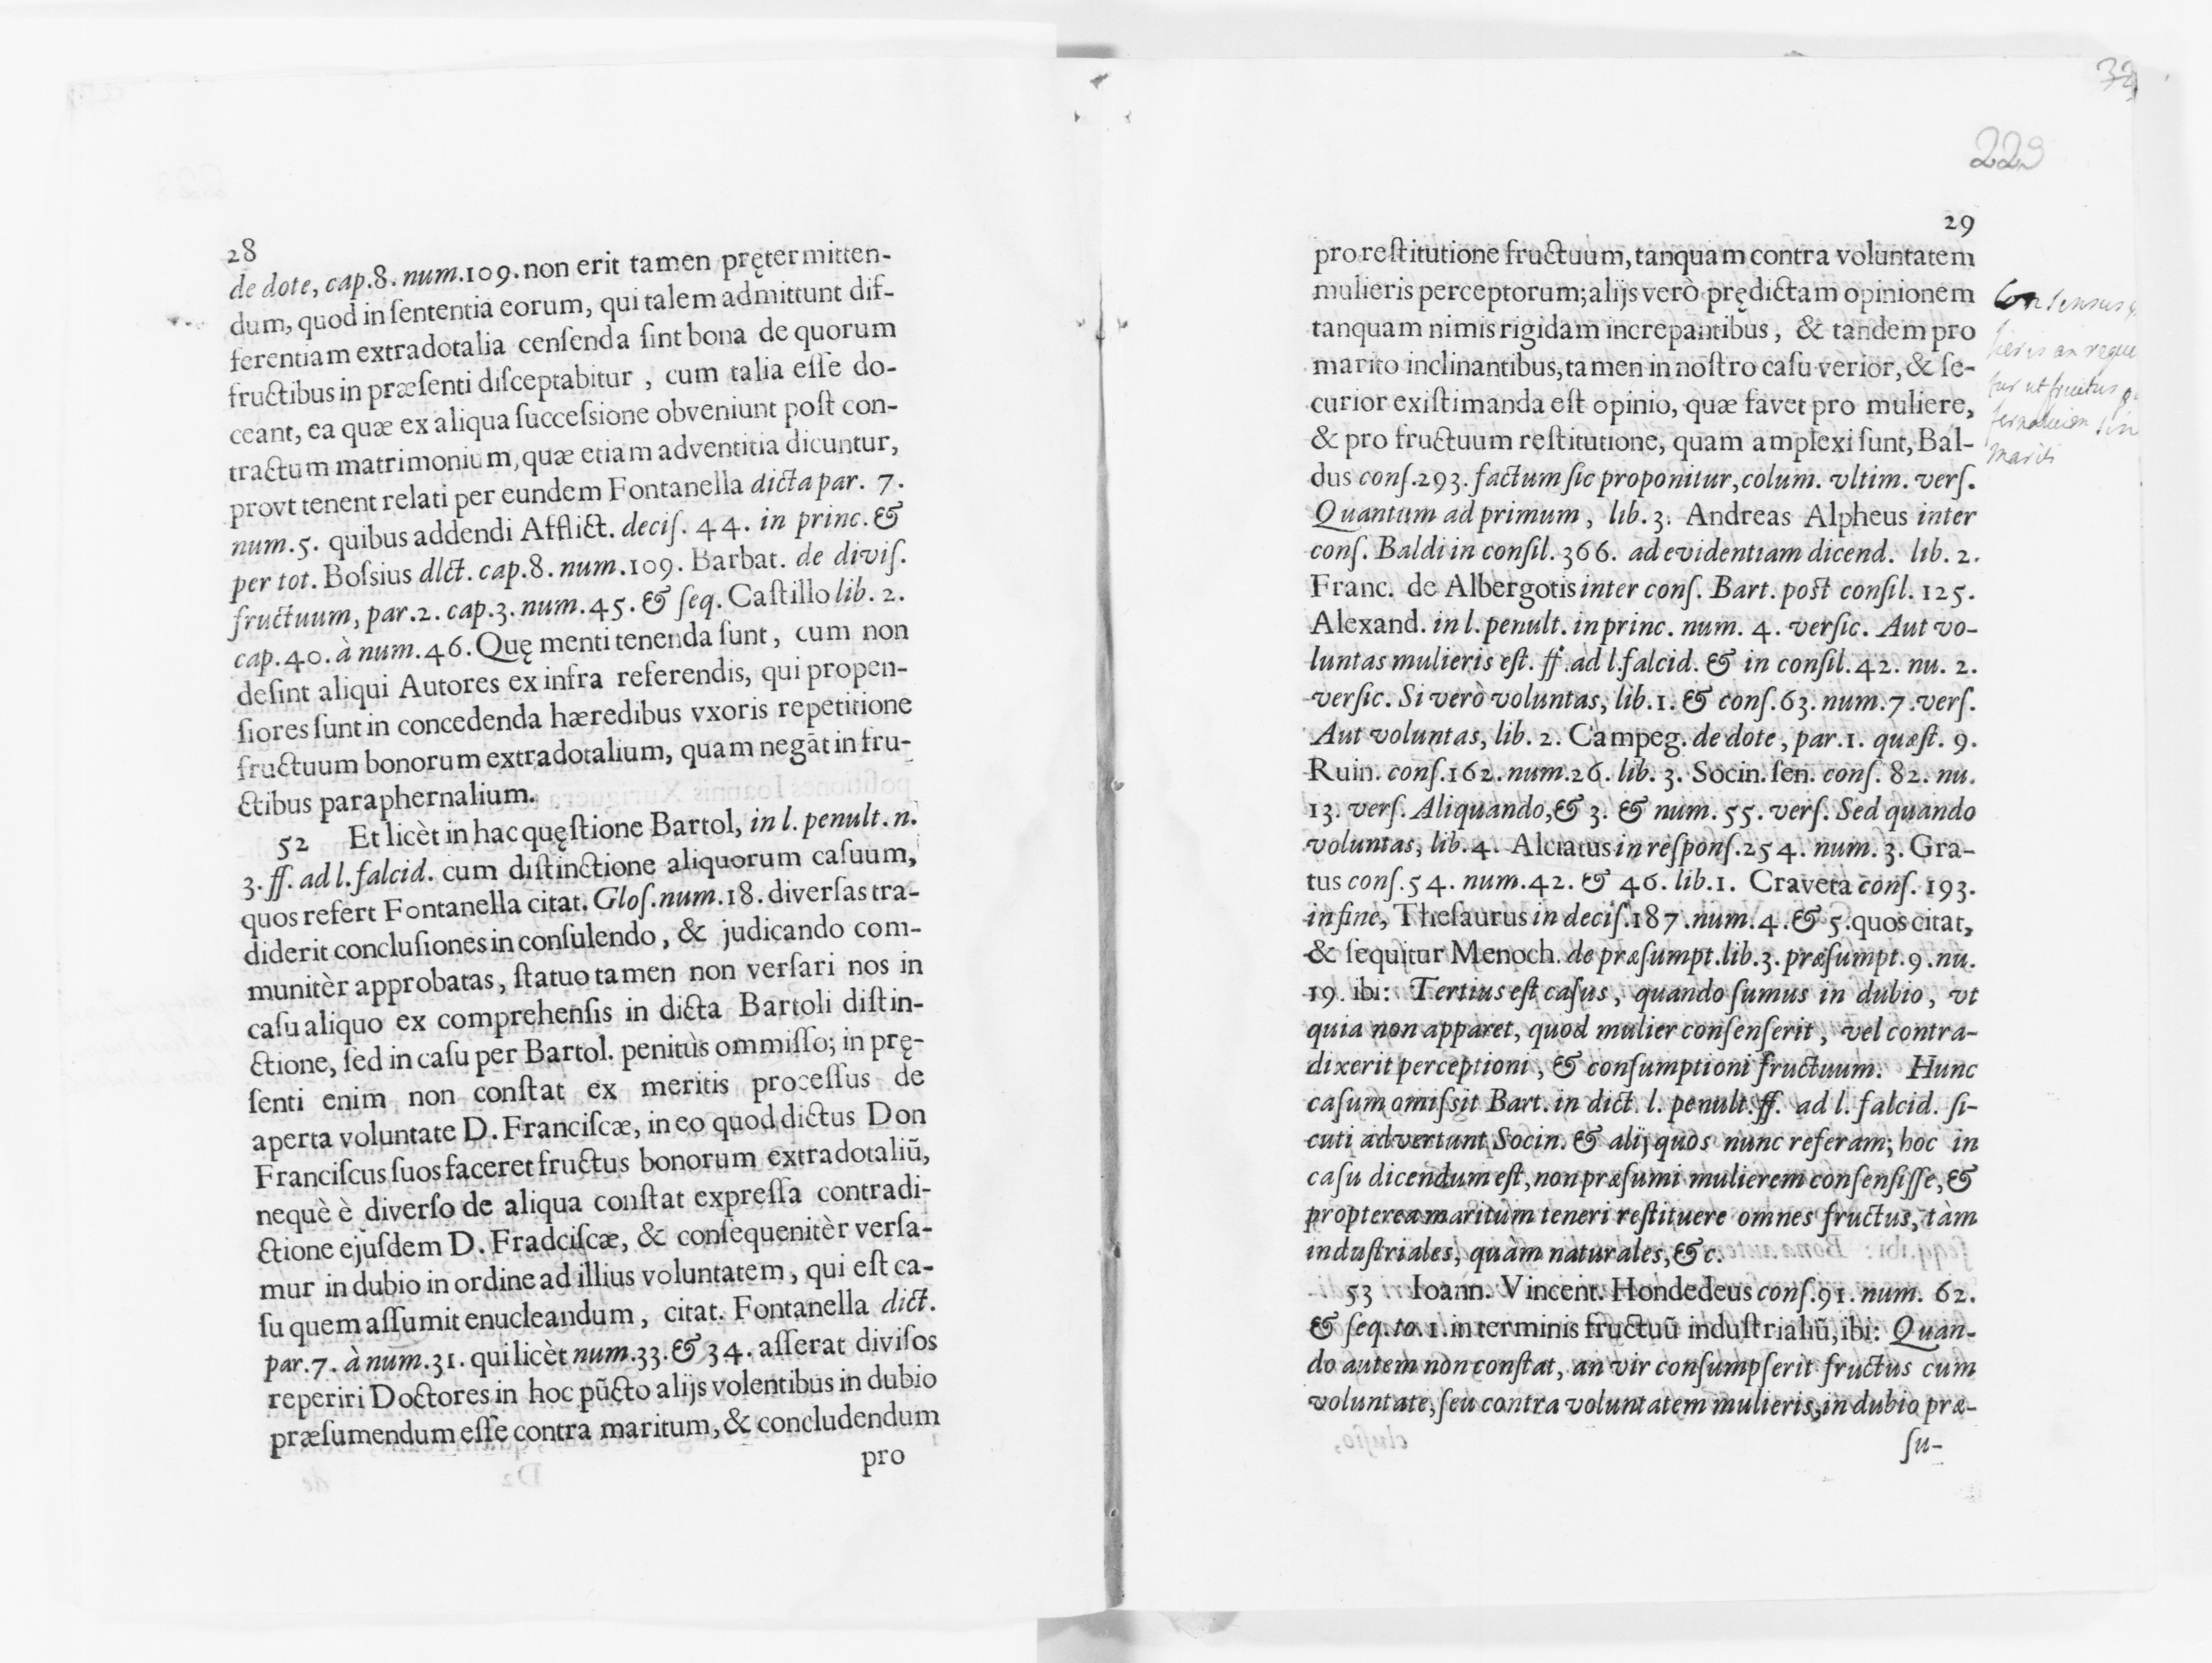 28
de dote, cap.8. num.109. non erit tamen prętermitten-
dum, quod in ſententia eorum, qui talem admittunt dif-
ferentiam extradotalia cenſenda ſint bona de quorum
fructibus in præſenti diſceptabitur, cum talia eſſe do-
ceant, ea quæ ex aliqua ſucceſsione obveniunt poſt con-
tractum matrimonium, quæ etiam adventitia dicuntur,
provt tenent relati per eundem Fontanella dicta par. 7.
num.5. quibus addendi Afflict. deciſ. 44. in princ. &
per tot. Boſsius dlct. cap.8. num.109. Barbat. de diviſ.
fructuum, par.2. cap.3. num.45. & ſeq. Caſtillo lib. 2.
cap.40. à num.46. Quę menti tenenda ſunt, cum non
deſint aliqui Autores ex infra referendis, qui propen-
ſiores ſunt in concedenda hæredibus vxoris repetitione
fructuum bonorum extradotalium, quam negāt in fru-
ctibus paraphernalium.
52 Et licèt in hac quęſtione Bartol, in l. penult. n.
3. ff. ad l. falcid. cum diſtinctione aliquorum caſuum,
quos refert Fontanella citat. Gloſ. num.18. diverſas tra-
diderit concluſiones in conſulendo, & judicando com-
munitèr approbatas, ſtatuo tamen non verſari nos in
caſu aliquo ex comprehenſis in dicta Bartoli diſtin-
ctione, ſed in caſu per Bartol. penitùs ommiſſo; in prę-
ſenti enim non conſtat ex meritis proceſſus de
aperta voluntate D. Franciſcæ, in eo quod dictus Don
Franciſcus ſuos faceret fructus bonorum extradotaliū,
nequè è diverſo de aliqua conſtat expreſſa contradi-
ctione ejuſdem D. Fradciſcæ, & conſequenitèr verſa-
mur in dubio in ordine ad illius voluntatem, qui eſt ca-
ſu quem aſſumit enucleandum, citat. Fontanella dict.
par. 7. à num.31. qui licèt num.33. & 34. aſſerat diviſos
reperiri Doctores in hoc pūcto alijs volentibus in dubio
præſumendum eſſe contra maritum, & concludendum
pro
229
29
pro reſtitutione fructuum, tanquam contra voluntatem
mulieris perceptorum; alijs verò prędictam opinionem
tanquam nimis rigidam increpantibus, & tandem pro
marito inclinantibus, tamen in noſtro caſu verior, & ſe-
curior exiſtimanda eſt opinio, quæ favet pro muliere,
& pro fructuum reſtitutione, quam amplexi ſunt, Bal-
dus conſ.293. factum ſic proponitur, colum. vltim. verſ.
Quantum ad primum, lib.3. Andreas Alpheus inter
conſ. Baldi in conſil.366. ad evidentiam dicend. lib. 2.
Franc. de Albergotis inter conſ. Bart. post conſil. 125.
Alexand. in l. penult. in princ. num. 4. verſic. Aut vo-
luntas mulieris eſt. ff. ad l. falcid. & in conſil.42. nu. 2.
verſic. Si verò voluntas, lib.1. & conſ.63. num.7. verſ.
Aut voluntas, lib. 2. Campeg. de dote, par.1. quæſt. 9.
Ruin. conſ.162. num.26. lib. 3. Socin. ſen. conſ. 82. nu.
13. verſ. Aliquando, & 3. & num. 55. verſ. Sed quando
voluntas, lib.4. Alciatus in reſponſ.254. num. 3. Gra-
tus conſ.54. num.42. & 46. lib.1. Craveta conſ. 193.
in fine, Theſaurus in deciſ.187. num.4. & 5. quos citat,
& ſequitur Menoch. de præſumpt. lib.3. præſumpt.9. nu.
19. ibi: Tertius eſt caſus, quando ſumus in dubio, vt
quia non apparet, quod mulier conſenſerit, vel contra-
dixerit perceptioni, & conſumptioni fructuum. Hunc
caſum omiſsit Bart. in dict. l. penult. ff. ad l. falcid. ſi-
cuti advertunt Socin. & alij quos nunc referam; hoc in
caſu dicendum eſt, non præſumi mulierem conſenſiſſe, &
propterea maritum teneri reſtituere omnes fructus, tàm
induſtriales, quàm naturales, & c.
53 Ioann. Vincent. Hondedeus conſ.91. num. 62.
& ſeq. to. 1. in terminis fructuū induſtrialiū, ibi: Quan-
do autem non conſtat, an vir conſumpſerit fructus cum
voluntate, ſeu contra voluntatem mulieris, in dubio præ-
ſu-
Consensus
an
ut fructus
mariti